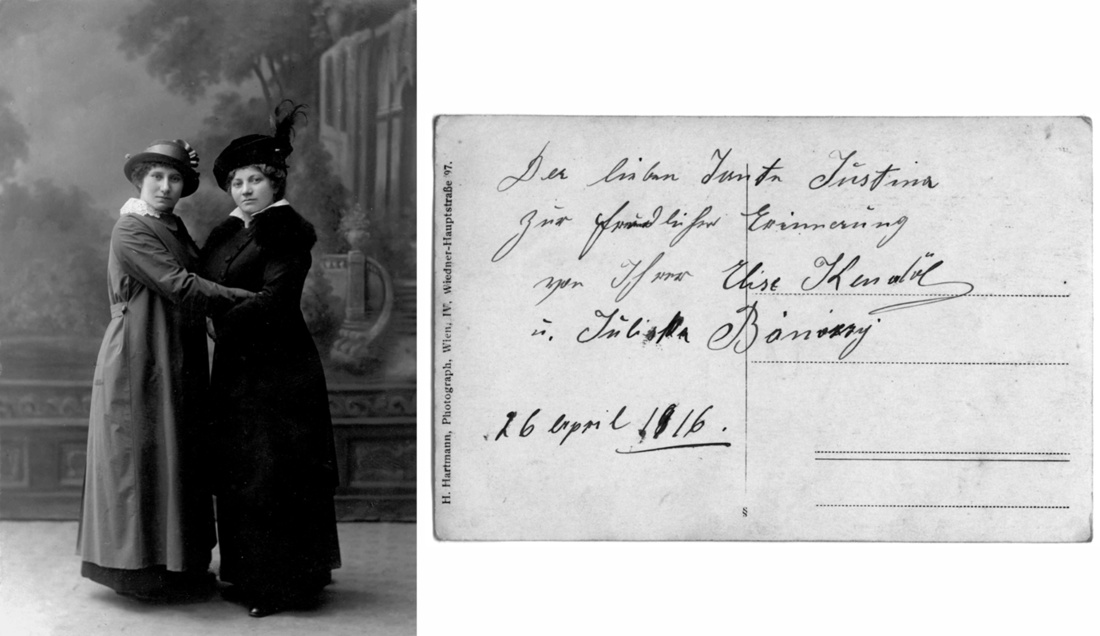 H. Hartmann, Photograph, Wien, IV, Wiedner-Hauptstraße 97.
Der lieben Tante Justina
zur freudlicher Erinnerung
von Ihrer Elise
u. Juliska
26 April 1916.
§